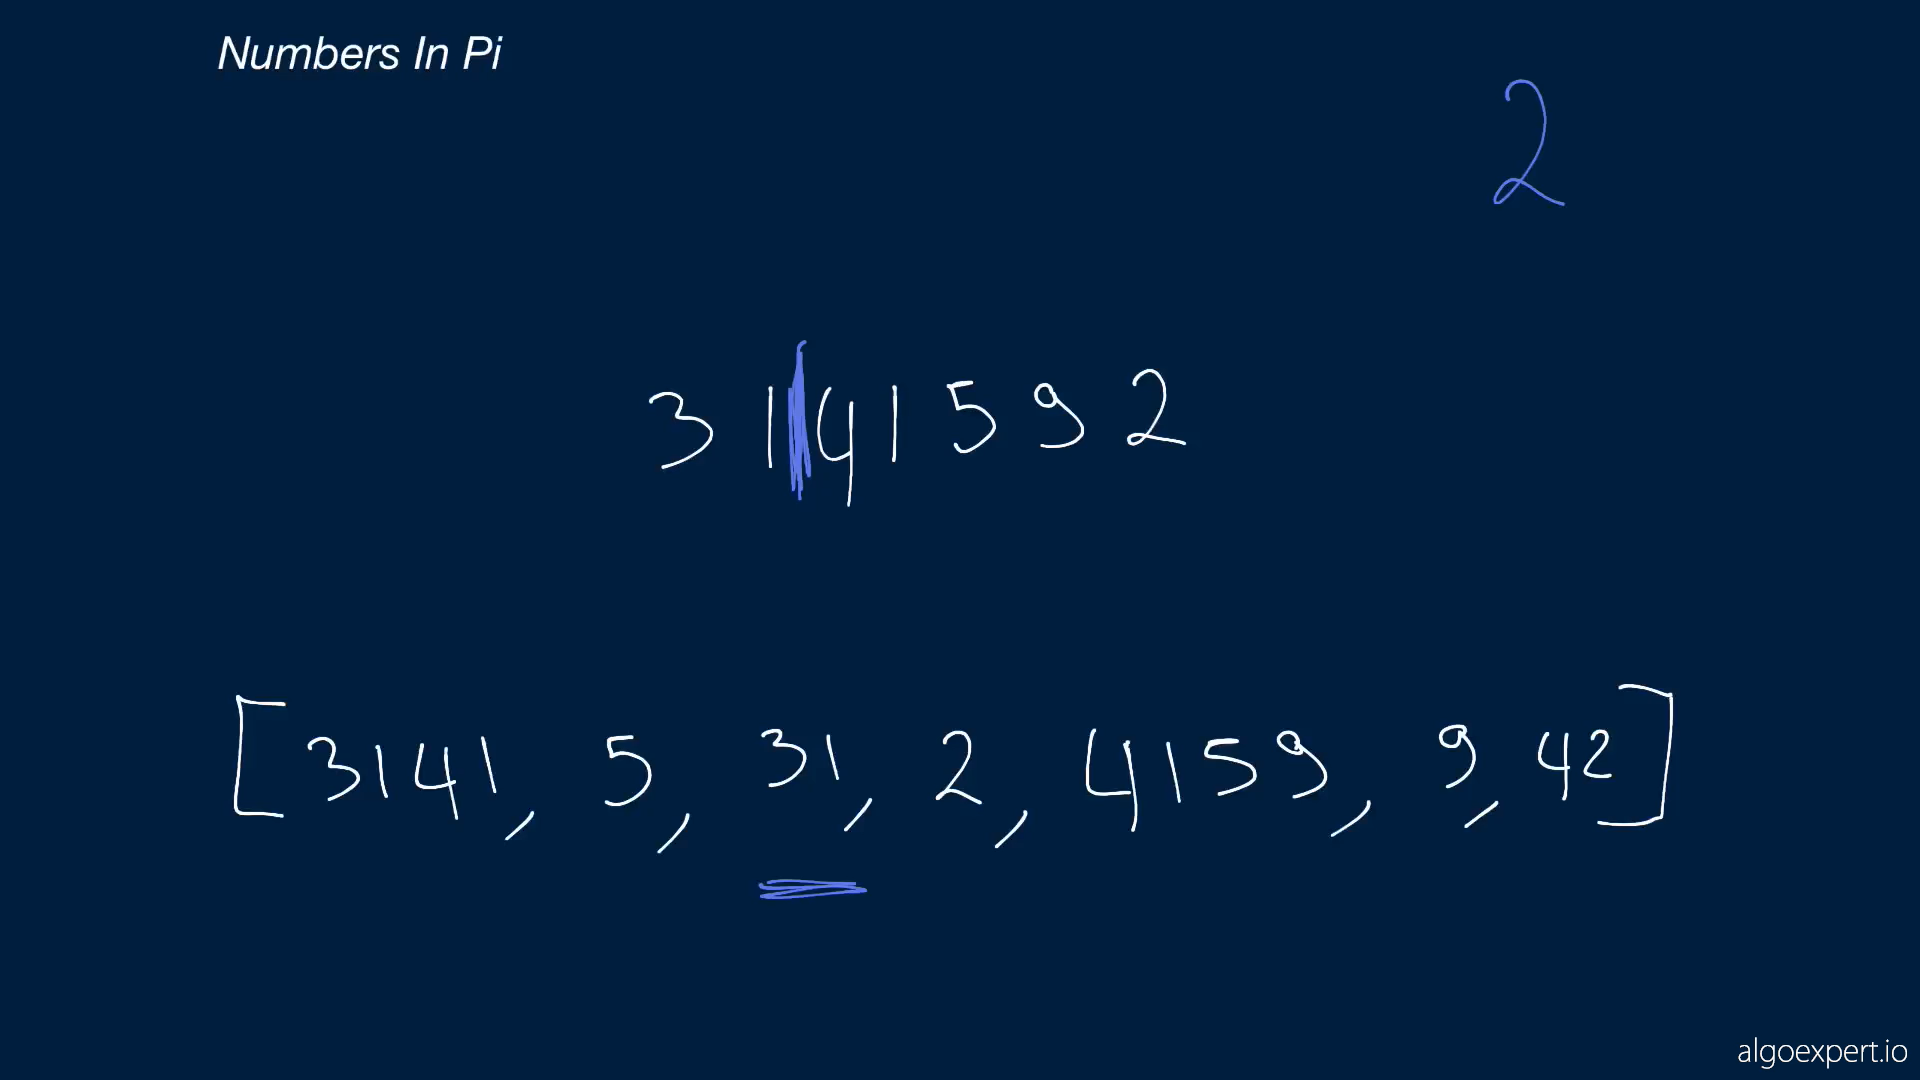 Numbers In Pi
2
3 1 4 1 5 9 2
[3141, 5, 31, 2, 4159, 9, 42]
algoexpert.io